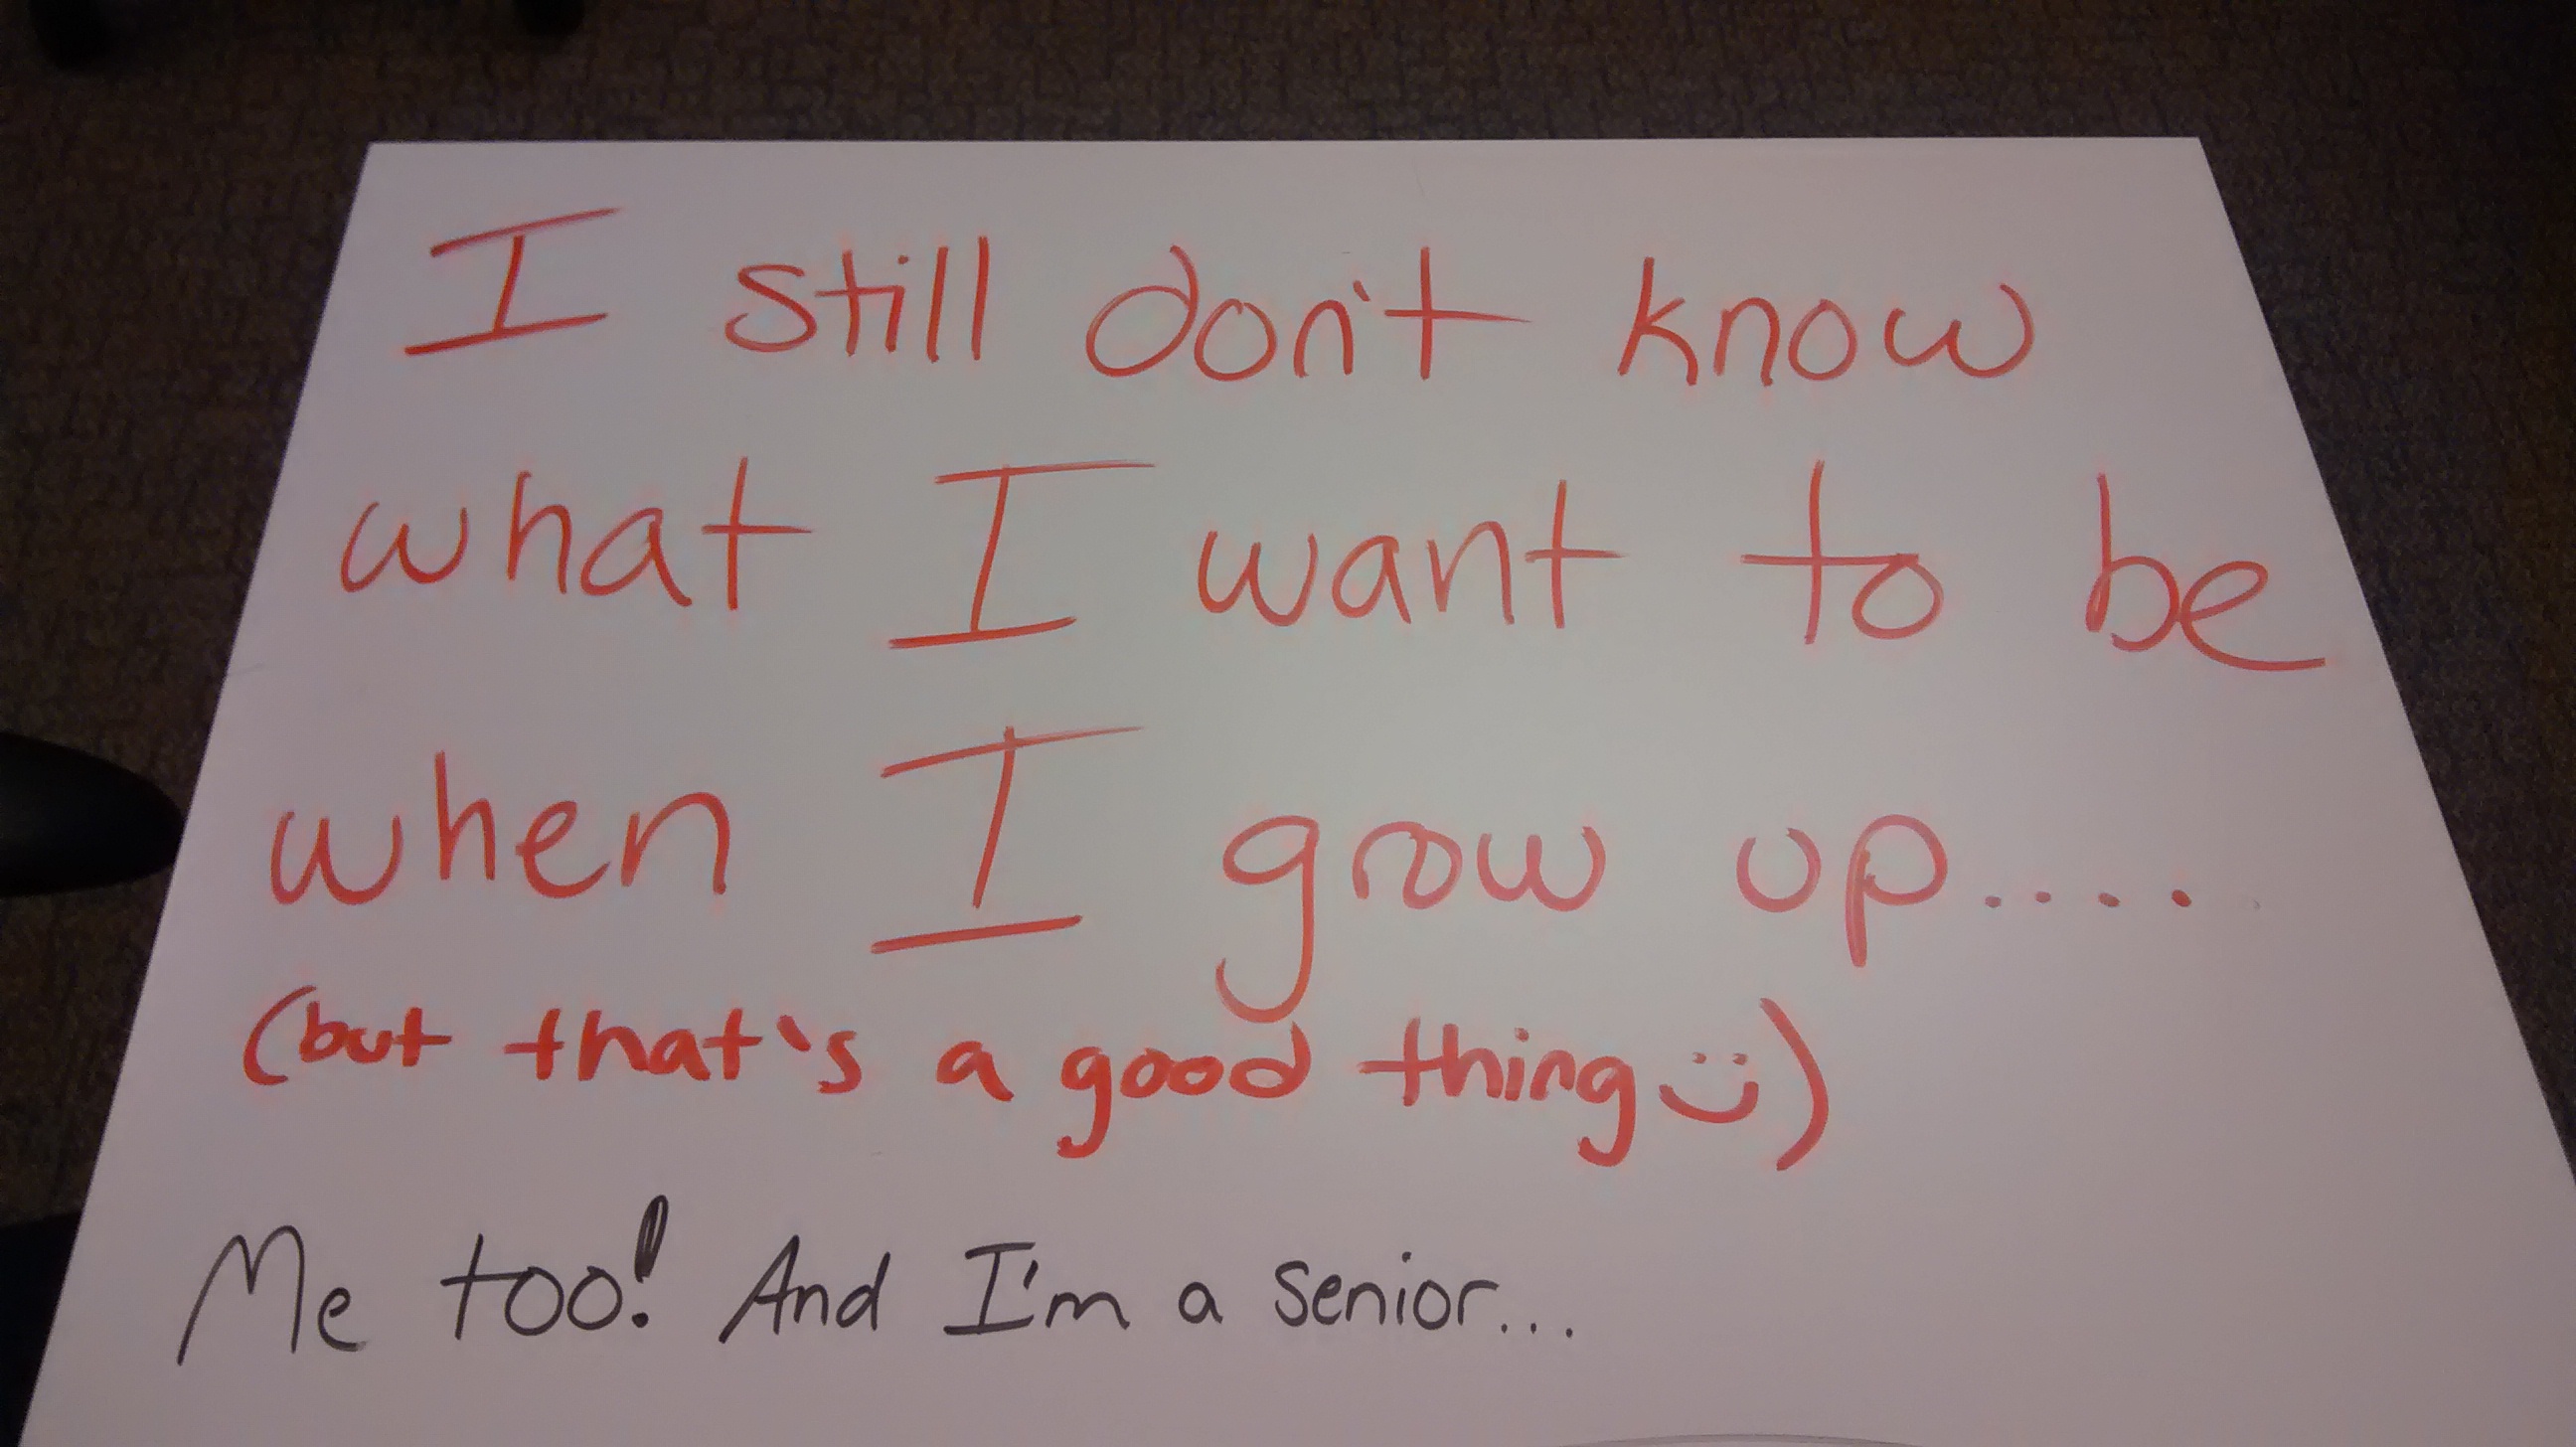 I still don't know
what I want to be
when I grow up....
(but that's a good thing :))
Me too! And I'm a senior...